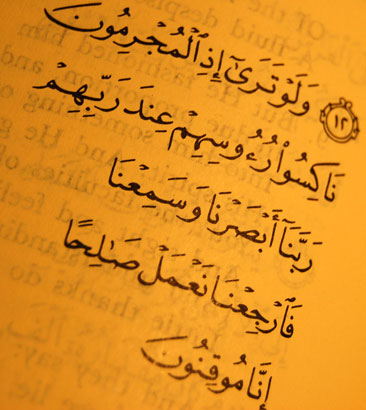 ١٢ وَلَوْ تَرَىٰٓ إِذِ ٱلْمُجْرِمُونَ
نَاكِسُوا۟ رُءُوسِهِمْ عِندَ رَبِّهِمْ
رَبَّنَآ أَبْصَرْنَا وَسَمِعْنَا
فَٱرْجِعْنَا نَعْمَلْ صَٰلِحًا
إِنَّا مُوقِنُونَ